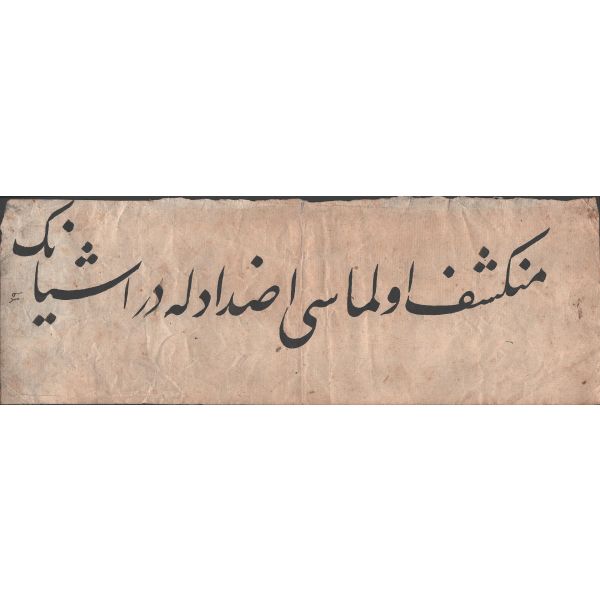 منكشف اولماسى اضداد له در اشيانك